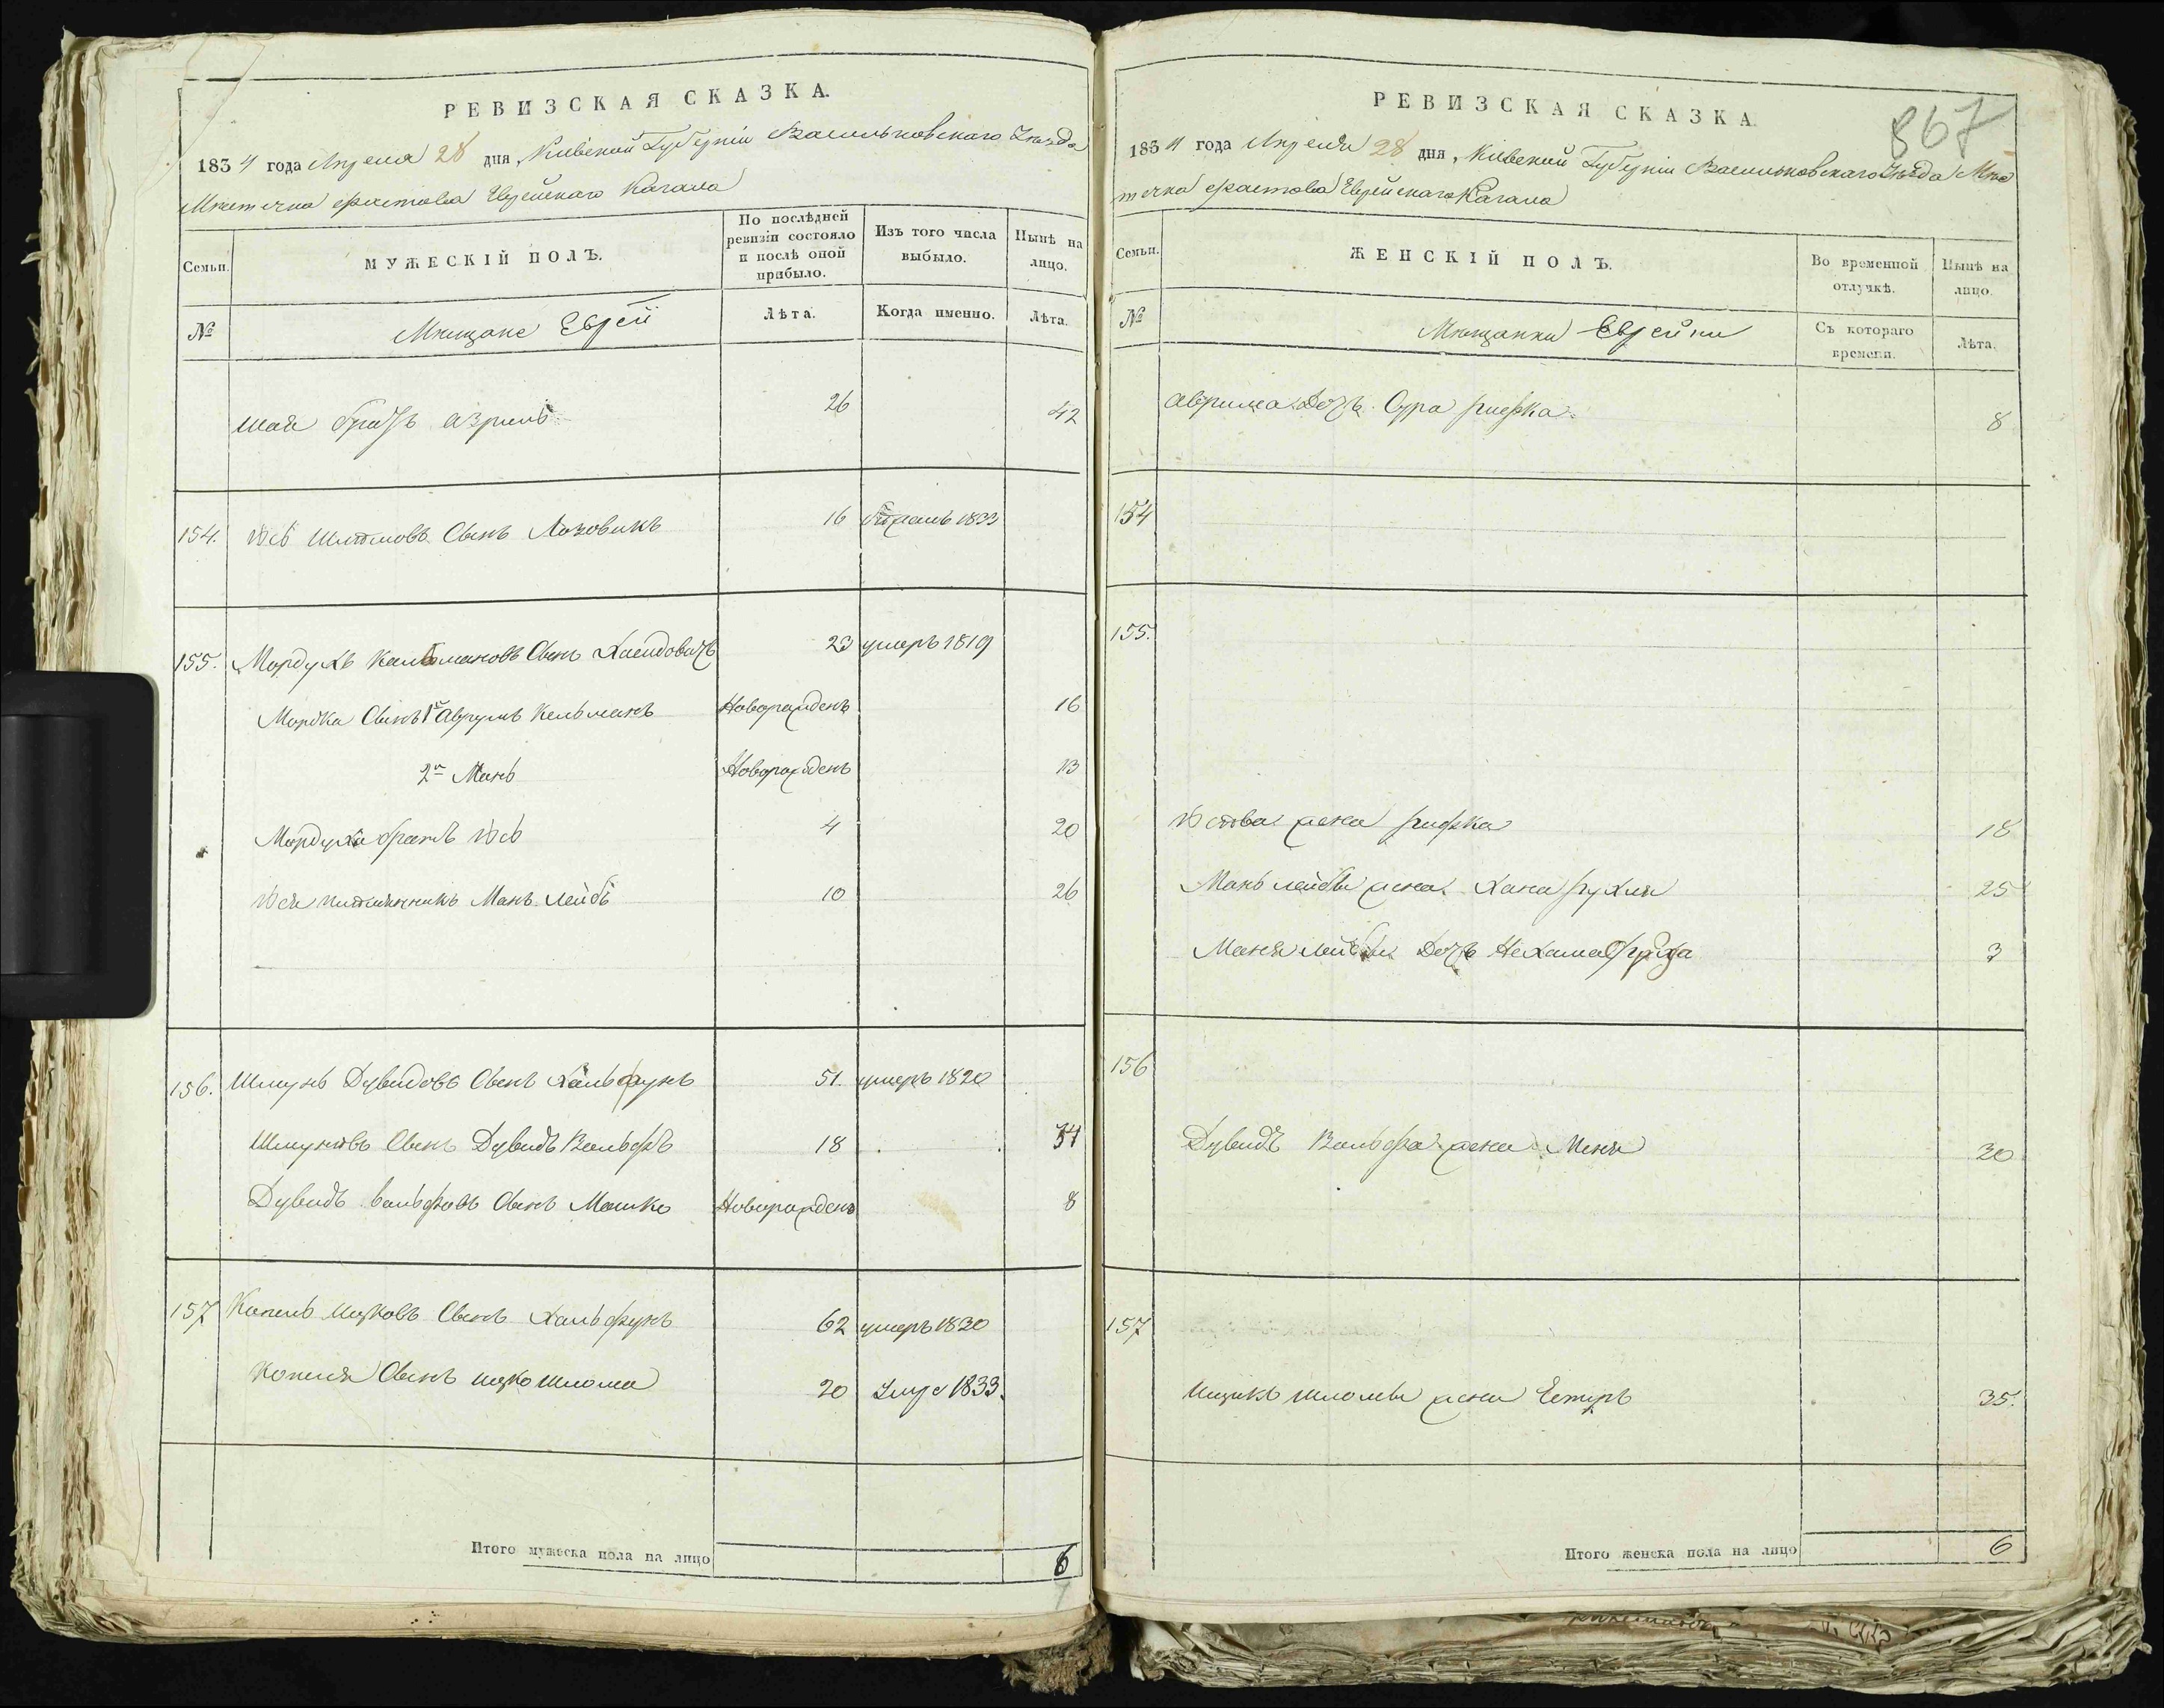 РЕВИЗСКАЯ СКАЗКА.
1834 года Апреля 28 дня, Кіевской Губерніи Васильковскаго Уѣзда
Мѣстечка Фастова Еврейскаго Кагала
Семьи.
МУЖЕСКІЙ ПОЛЪ.
По послѣдней ревизіи состояло и послѣ оной прибыло.
Изъ того числа выбыло.
Нынѣ на лицо.
№
Мѣщане Евреи
Лѣта.
Когда именно.
Лѣта.
Шаи братъ Азриль 26 42
154. Юсь Шлюмовъ Сынъ Лозовикъ 16 1833
155. Мордухъ Кельмановъ Сынъ 23 умеръ 1819
Мордка Сынъ 1й Аврумъ Кельманъ Новорожденъ 16
2й Манъ Новорожденъ 13
Мордуха братъ Юсь 4 20
Юся племянникъ Манъ Лейбъ 10 26
156. Шмунь Дувидовъ Сынъ Хальфунъ 51. умеръ 1820
Шмуновъ Сынъ Дувидъ Вольфъ 18 34
Дувидъ Вольфовъ Сынъ Мошко Новорожденъ 8
157 Копель Ицковъ Сынъ Хальфунъ 62 умеръ 1830
Копеля Сынъ Ицко Шлома 20 1833.
Итого мужеска пола на лицо 6
7
РЕВИЗСКАЯ СКАЗКА.
867
1834 года Апреля 28 дня, Кіевской Губерніи Васильковскаго Уѣзда Мѣс
течка Фастова Еврейскаго Кагала
Семьи.
ЖЕНСКІЙ ПОЛЪ.
Во временной отлучкѣ.
Нынѣ на лицо.
№
Мѣщанки Еврейки
Съ котораго времени.
Лѣта.
Аврума Дочь Сура Рифка. 8
154
155.
Юсова жена Рифка 18
Манъ Лейбы жена Хана Рухля 25
Маня Лейбы Дочь Нехама 3
156
Дувидъ Вольфа жена Меня 30
157
Ицикъ Шломы жена Естуръ 35.
Итого женска пола на лицо 6